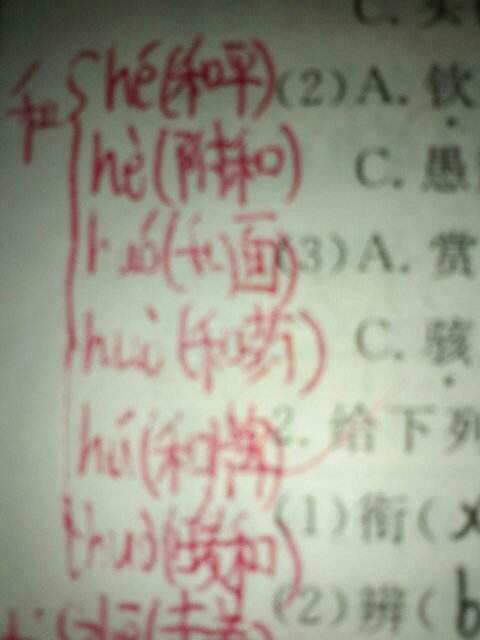 C.
和{hé(和平) (2)A. 钦
hè(附和) C. 愚
huó(和面) (3)A. 赏
huò(和药) C. 骇
hú(和牌) 2. 给下列
huo(暖和) (1)衔(x
(2)辨(b